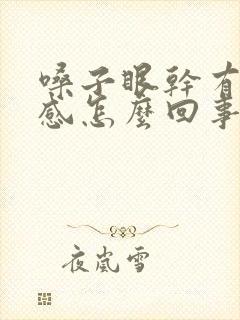 嗓子眼幹有
感怎麼回事
夜嵐雪